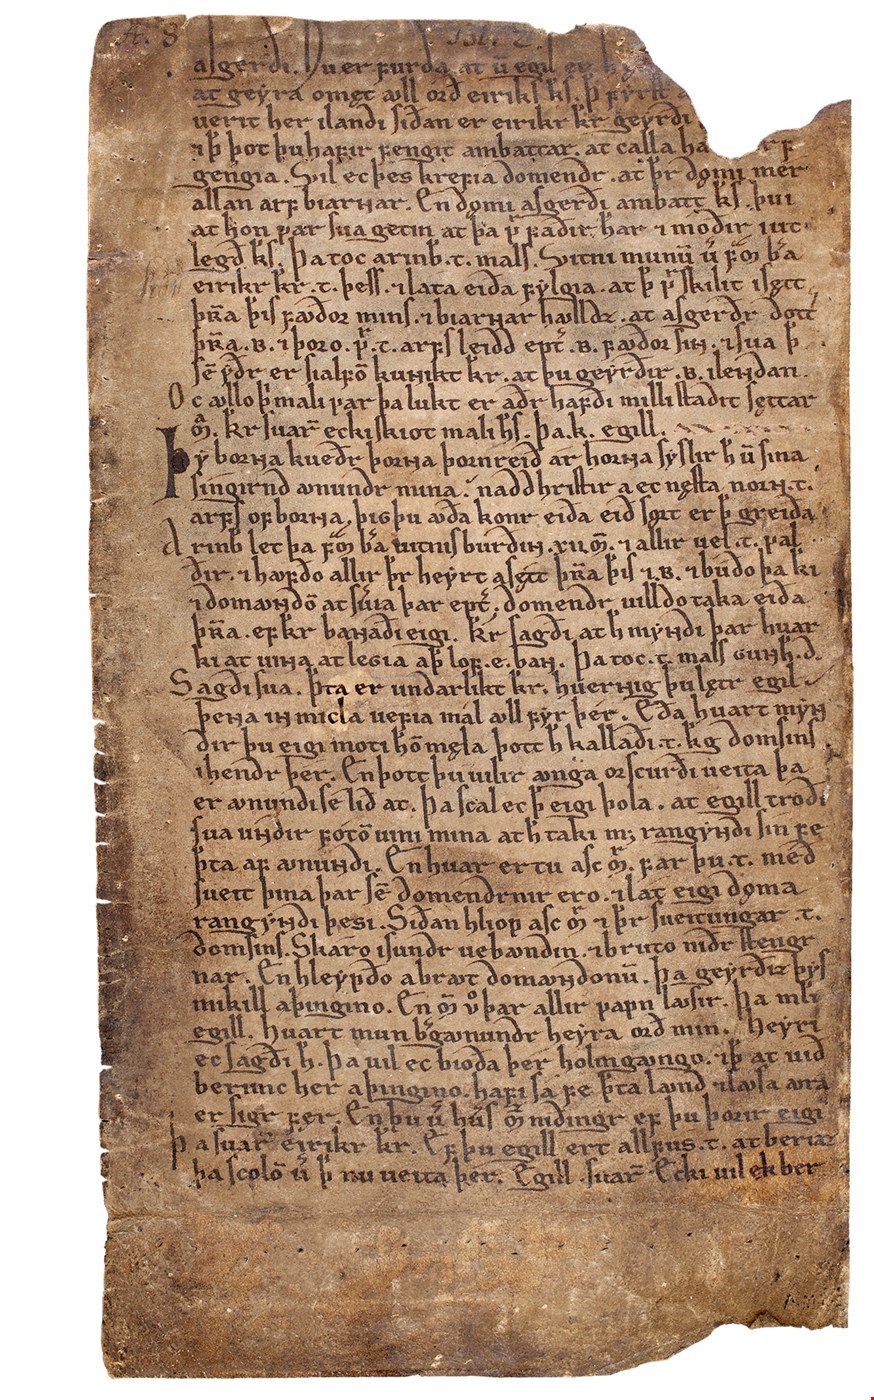 asgerdi. Nu er ꝼurða at ū egil er
at geyra omęt ꜹll orð eiriks ks. þ ꝼyrſt
uerit her ilandi siðan er eirikr kr geyrði
⁊ þ̄ þot þu haꝼir ꝼengit ambattar. at calla
gengia. Vil ec þes kreꝼia domendr. at þr dǫmi mer
allan arꝼ biarnar. En dǫmi asgerði ambatt ks. þui
at hon var sua getin at þa ꝼaðir har ⁊ moðir iut
legð ks. Þa toc arinb. t. mals. Vitni munū ꝼ bera
eirikr kr. t. þess. ⁊ lata eiða ꝼylgia. at þ skilit isętt
þra þis ꝼꜹðor mins. ⁊ biarnar hꜹllꝺz. at asgerðr dott
þra. ʙ. ⁊ þoro. t. arꝼs leidd ept. ʙ. ꝼꜹðor siɴ. ⁊ sua þ
sē yðr er sialꝼō kunikt kr. at þu geyrðir. ʙ. ilendan.
Oc ꜹllo þ mali var þa lukt er aðr haꝼdi milli ſtaðit sęttar
m̄. kr suar ecki skiot mali hs. þa. k. egill.
Þy borna kueðr þorna þornreið at horna syslir h ū sina
singirnd ꜹnundr nuna. nadd hriſtir a ec nęſta norn. t.
arꝼs oꝼ borna, þigþu ꜹða konr eiða eið sǫrt er þ greiða
Arinb let þa ꝼ bera vitnis burðiɴ. xii m̄. ⁊ allir vel. t. val
ðir. ⁊ hꜹꝼdo allir þr heyrt asętt þra þis ⁊. ʙ. ⁊ buðo þa ki
⁊ domꜹndō at suerа þar ept. domendr villdo taka eiða
þra. eꝼ kr banaði eigi. kr sagði at h myndi þar huar
ki at uiɴa at legia aþ loꝼ. e. ban. Þa toc. t. mals gunh. d.
Sagði sua. þta er undarlikt kr. huernig þu lętr egil
þeɴa iɴ micla ueꝼia mál ꜹll ꝼyr þer. Eða huart myn
dir þu eigi moti hō męla þott h kallaði. t. kgdomsins
ihendr þer. En þott þu vilir ꜹnga orscurði veita þa
er ꜹnundi sē lið at. Þa scal ec þ eigi þola. at egill troði
sua undir ꝼotō uini mina at h taki m; rangyndi sin ꝼe
þta aꝼ ꜹnundi. En huar ertu asc m̄. ꝼar þu. t. með
sueit þina þar sē domendrnir ero. ⁊ lat eigi dǫma
rangyndi þesi. Siðan hliop asc m̄ ⁊ þr sueitungar. t.
domsins. Skáro isundr uebꜹndin. ⁊ bruto niðr ſtengr
nar. En hleypdo abrꜹt domꜹndonū. Þa geyrðiz þys
mikill aþingino. En m̄ þar allir vapn lꜹsir. Þa mli
egill. huart mun bergꜹnundr heyra orð min. Heyri
ec sagði h. Þa vil ec bioða þer holmgꜹngo. ⁊ þ at við
berimc her aþingino. haꝼi sa ꝼe þta lꜹnd ⁊ lꜹsa ꜹra
er sigr ꝼer. En þu hūs m̄ niðingr eꝼ þu þorir eigi
Þa suar eirikr kr. Eꝼ þu egill ert allꝼus. t. at beriaz
þa scolō þ nu veita þer. Egill suar Ecki vil ek ber